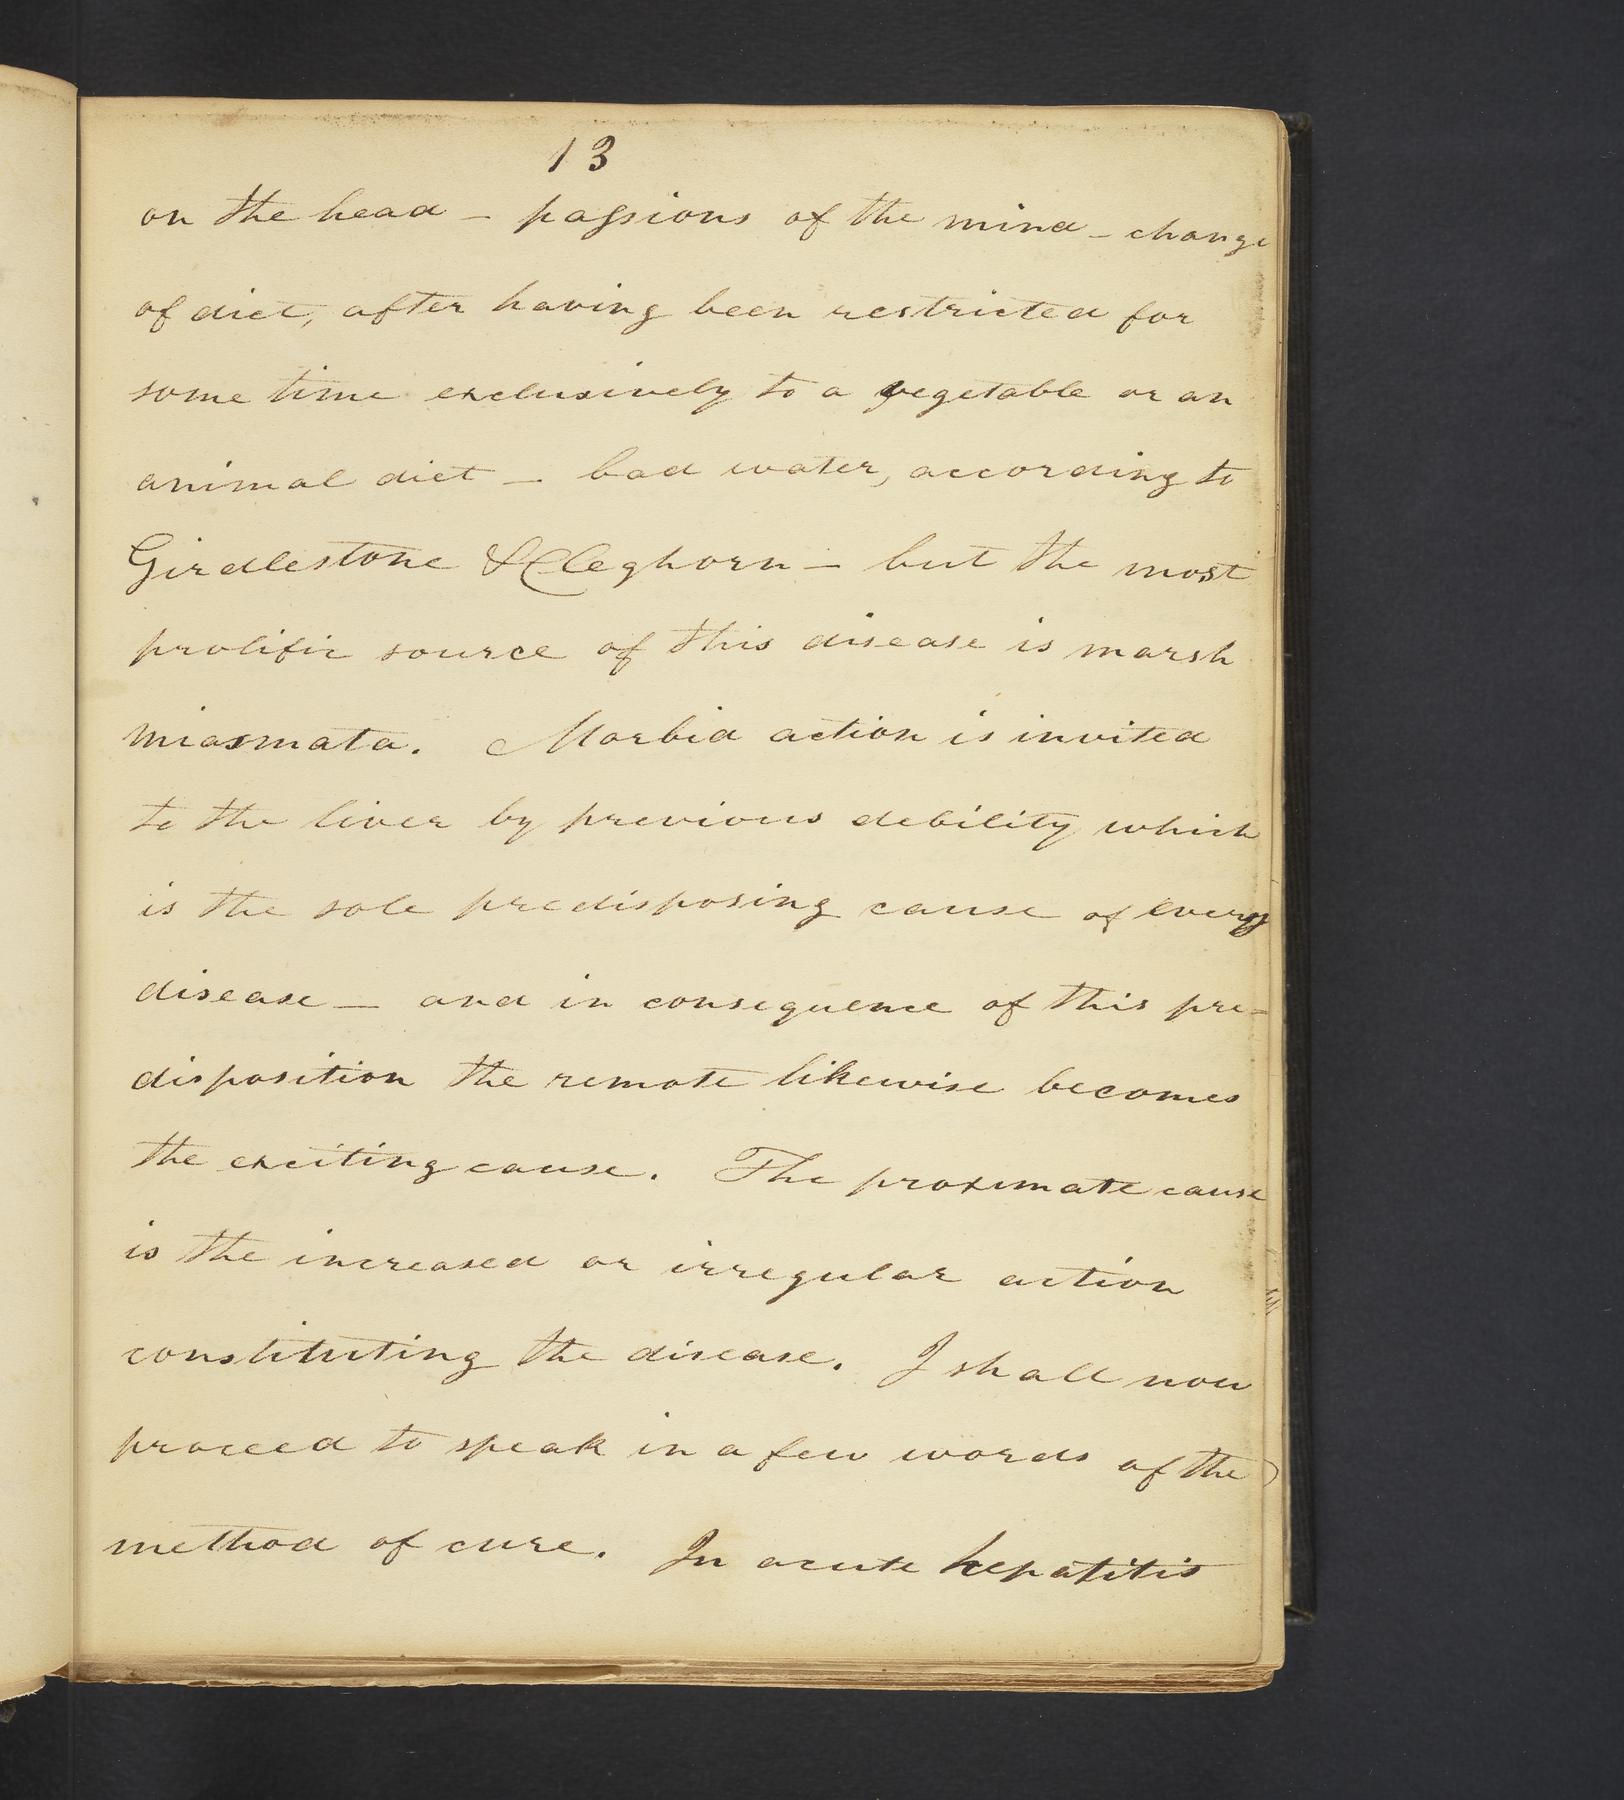 13
on the head – passions of the mind – change
of diet, after having been restricted for
some time exclusively to a vegetable or an
animal diet – bad water, according to
Girdlestone & Cleghorn – but the most
prolific source of this disease is marsh
miasmata. Morbid action is invited
to the liver by previous debility which
is the sole predisposing cause of every
disease – and in consequence of this pre=
disposition the remote likewise becomes
the exciting cause. The proximate cause
is the increased or irregular action
constituting the disease. I shall now
proceed to speak in a few words of the
method of cure. In acute hepatitis